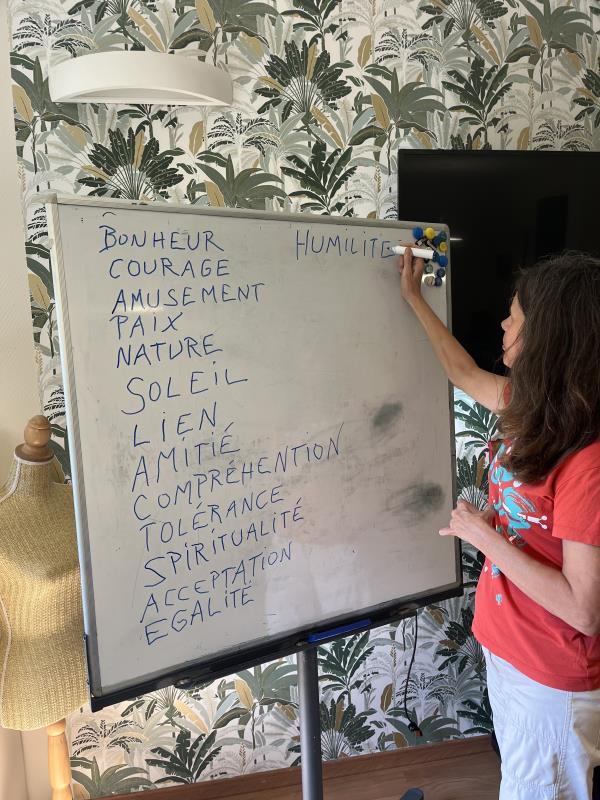 BONHEUR
COURAGE
AMUSEMENT
PAIX
NATURE
SOLEIL
LIEN
AMITIÉ
COMPRÉHENTION
TOLÉRANCE
SPIRITUALITÉ
ACCEPTATION
EGALITÉ
HUMILITE